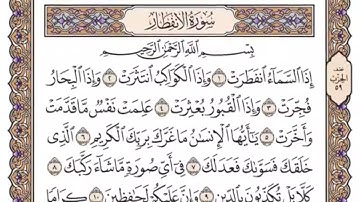 سورة الانفطار
بِسْمِ اللَّهِ الرَّحْمَٰنِ الرَّحِيمِ
إِذَا السَّمَاءُ انفَطَرَتْ ١ وَإِذَا الْكَوَاكِبُ انتَثَرَتْ ٢ وَإِذَا الْبِحَارُ
فُجِّرَتْ ٣ وَإِذَا الْقُبُورُ بُعْثِرَتْ ٤ عَلِمَتْ نَفْسٌ مَّا قَدَّمَتْ
وَأَخَّرَتْ ٥ يَا أَيُّهَا الْإِنسَانُ مَا غَرَّكَ بِرَبِّكَ الْكَرِيمِ ٦ الَّذِي
خَلَقَكَ فَسَوَّاكَ فَعَدَلَكَ ٧ فِي أَيِّ صُورَةٍ مَّا شَاءَ رَكَّبَكَ ٨
كَلَّا بَلْ تُكَذِّبُونَ بِالدِّينِ ٩ وَإِنَّ عَلَيْكُمْ لَحَافِظِينَ ١٠ كِرَامًا
الحزب
٥٩